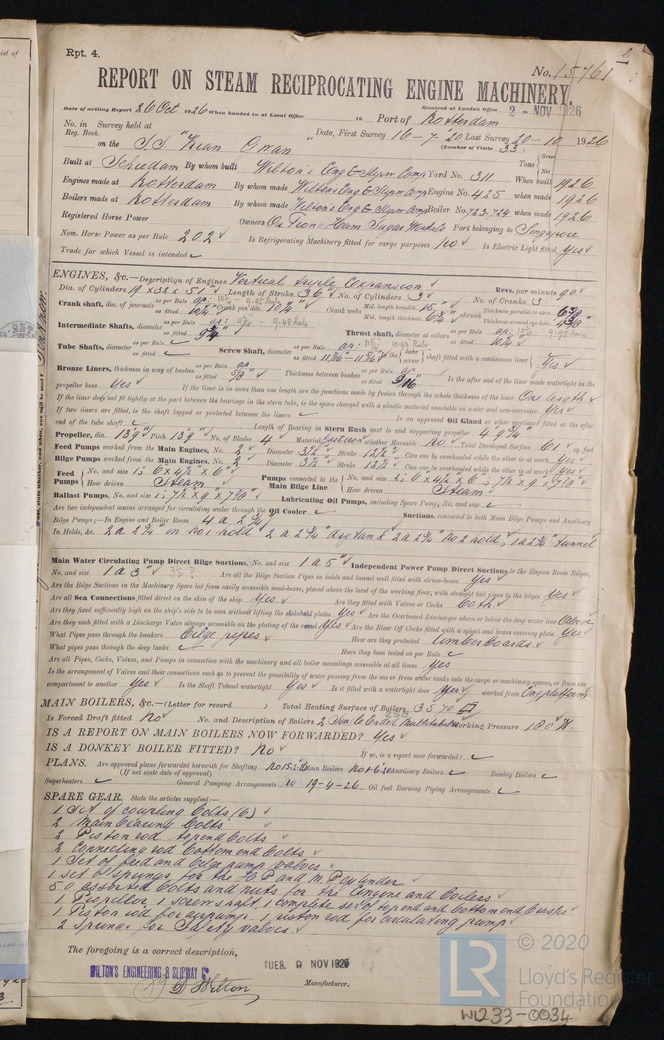 Rpt. 4.
No. 15761
REPORT ON STEAM RECIPROCATING ENGINE MACHINERY.
Received at London Office 2 - NOV 1926
Date of writing Report 26 Oct 1926 When handed in at Local Office 10 Port of Rotterdam
No. in Survey held at Date, First Survey 16-7-20 Last Survey 20-10 1926
Reg. Book. (Number of Visits 33)
on the S.S. "Kian Gwan" Tons Gross Net
Built at Schiedam By whom built Wilton's Eng & Slipw Comp Yard No. 311 When built 1926
Engines made at Rotterdam By whom made Wilton's Eng & Slipw Comp Engine No. 425 when made 1926
Boilers made at Rotterdam By whom made Wilton's Eng & Slipw Comp Boiler No. 723-724 when made 1926
Registered Horse Power Owners Port belonging to Singapore
Nom. Horse Power as per Rule 202 Is Refrigerating Machinery fitted for cargo purposes No Is Electric Light fitted Yes
Trade for which Vessel is intended
ENGINES, &c.—Description of Engines Vertical triple Expansion Revs. per minute 90
Dia. of Cylinders 19" x 32 x 51" Length of Stroke 36 No. of Cylinders 3 No. of Cranks 3
Crank shaft, dia. of journals as per Rule as fitted 10 1/4 Crank pin dia. 10 1/4 Crank webs Mid. length breadth 15 Mid. length thickness 6 3/4 shrunk Thickness parallel to axis Thickness around eye-hole
Intermediate Shafts, diameter as per Rule as fitted 9 3/4 Thrust shaft, diameter at collars as per Rule as fitted 10 1/4
Tube Shafts, diameter as per Rule as fitted Screw Shaft, diameter as per Rule as fitted Is the tube screw shaft fitted with a continuous liner Yes
Bronze Liners, thickness in way of bushes as per Rule as fitted 5/8" Thickness between bushes as per Rule as fitted 9/16 Is the after end of the liner made watertight in the
propeller boss Yes If the liner is in more than one length are the junctions made by fusion through the whole thickness of the liner One length
If the liner does not fit tightly at the part between the bearings in the stern tube, is the space charged with a plastic material insoluble in water and non-corrosive Yes
If two liners are fitted, is the shaft lapped or protected between the liners Is an approved Oil Gland or other appliance fitted at the after
end of the tube shaft Length of Bearing in Stern Bush next to and supporting propeller 4' 9 3/4"
Propeller, dia. 13'9" Pitch 13'9" No. of Blades 4 Material Cast iron whether Moveable No Total Developed Surface 61 sq. feet
Feed Pumps worked from the Main Engines, No. 2 Diameter 3 1/2 Stroke 12 1/2 Can one be overhauled while the other is at work Yes
Bilge Pumps worked from the Main Engines, No. 2 Diameter 3 1/2 Stroke 12 1/2 Can one be overhauled while the other is at work Yes
Feed Pumps No. and size 1: 6 x 4 1/2 x 6 Pumps connected to the Main Bilge Line No. and size 1: 6 x 4 1/2 x 6 : 7 1/2 x 9 x 7 3/4
How driven Steam How driven Steam
Ballast Pumps, No. and size 1: 7 1/2 x 9 x 7 3/4 Lubricating Oil Pumps, including Spare Pump, No. and size
Are two independent means arranged for circulating water through the Oil Cooler Suctions, connected to both Main Bilge Pumps and Auxiliary
Bilge Pumps;—In Engine and Boiler Room 4 a 2 3/4"
In Holds, &c. 2 a 2 3/4" in No 1 hold 2 a 2 3/4 dry tank 2 a 2 3/4 No 2 hold, 1 a 2 3/4 tunnel
Main Water Circulating Pump Direct Bilge Suctions, No. and size 1 a 5" Independent Power Pump Direct Suctions to the Engine Room Bilges,
No. and size 1 a 3" Are all the Bilge Suction Pipes in holds and tunnel well fitted with strum-boxes Yes
Are the Bilge Suctions in the Machinery Space led from easily accessible mud-boxes, placed above the level of the working floor, with straight tail pipes to the bilges Yes
Are all Sea Connections fitted direct on the skin of the ship Yes Are they fitted with Valves or Cocks both
Are they fixed sufficiently high on the ship's side to be seen without lifting the stokehold plates Yes Are the Overboard Discharges above or below the deep water line Above
Are they each fitted with a Discharge Valve always accessible on the plating of the vessel Yes Are the Blow Off Cocks fitted with a spigot and brass covering plate Yes
What Pipes pass through the bunkers Bilge pipes How are they protected timberboards
What pipes pass through the deep tanks Have they been tested as per Rule
Are all Pipes, Cocks, Valves, and Pumps in connection with the machinery and all boiler mountings accessible at all times Yes
Is the arrangement of Valves and their connections such as to prevent the possibility of water passing from the sea or from water tanks into the cargo or machinery spaces, or from one
compartment to another Yes Is the Shaft Tunnel watertight Yes Is it fitted with a watertight door Yes worked from Eng platform
MAIN BOILERS, &c.—(Letter for record ) Total Heating Surface of Boilers 3570
Is Forced Draft fitted No No. and Description of Boilers 2 Single Ended Multitubular Working Pressure 180 lb.
IS A REPORT ON MAIN BOILERS NOW FORWARDED? Yes
IS A DONKEY BOILER FITTED? No If so, is a report now forwarded?
PLANS. Are approved plans forwarded herewith for Shafting Main Boilers Auxiliary Boilers Donkey Boilers
(If not state date of approval)
Superheaters General Pumping Arrangements 19-4-26. Oil fuel Burning Piping Arrangements
SPARE GEAR. State the articles supplied:—
1 Set of coupling bolts (6)
2 Main bearing bolts
2 Piston rod topend bolts
2 Connecting rod bottomend bolts
1 Set of feed and bilge pump valves
1 Set of springs for the H P and M P cylinder
50 assorted bolts and nuts for the Engine and Boilers
1 Propellor, 1 screwshaft, 1 complete set of topend and bottomend
1 Piston rod for airpump. 1 piston rod for circulating pump
2 Springs for Safety valves.
The foregoing is a correct description,
TUES. 9 NOV 1926
WILTON'S ENGINEERING & SLIPWAY Co
Wilton
Manufacturer.
LR
© 2020
Lloyd's Register
Foundation
W1233-0034